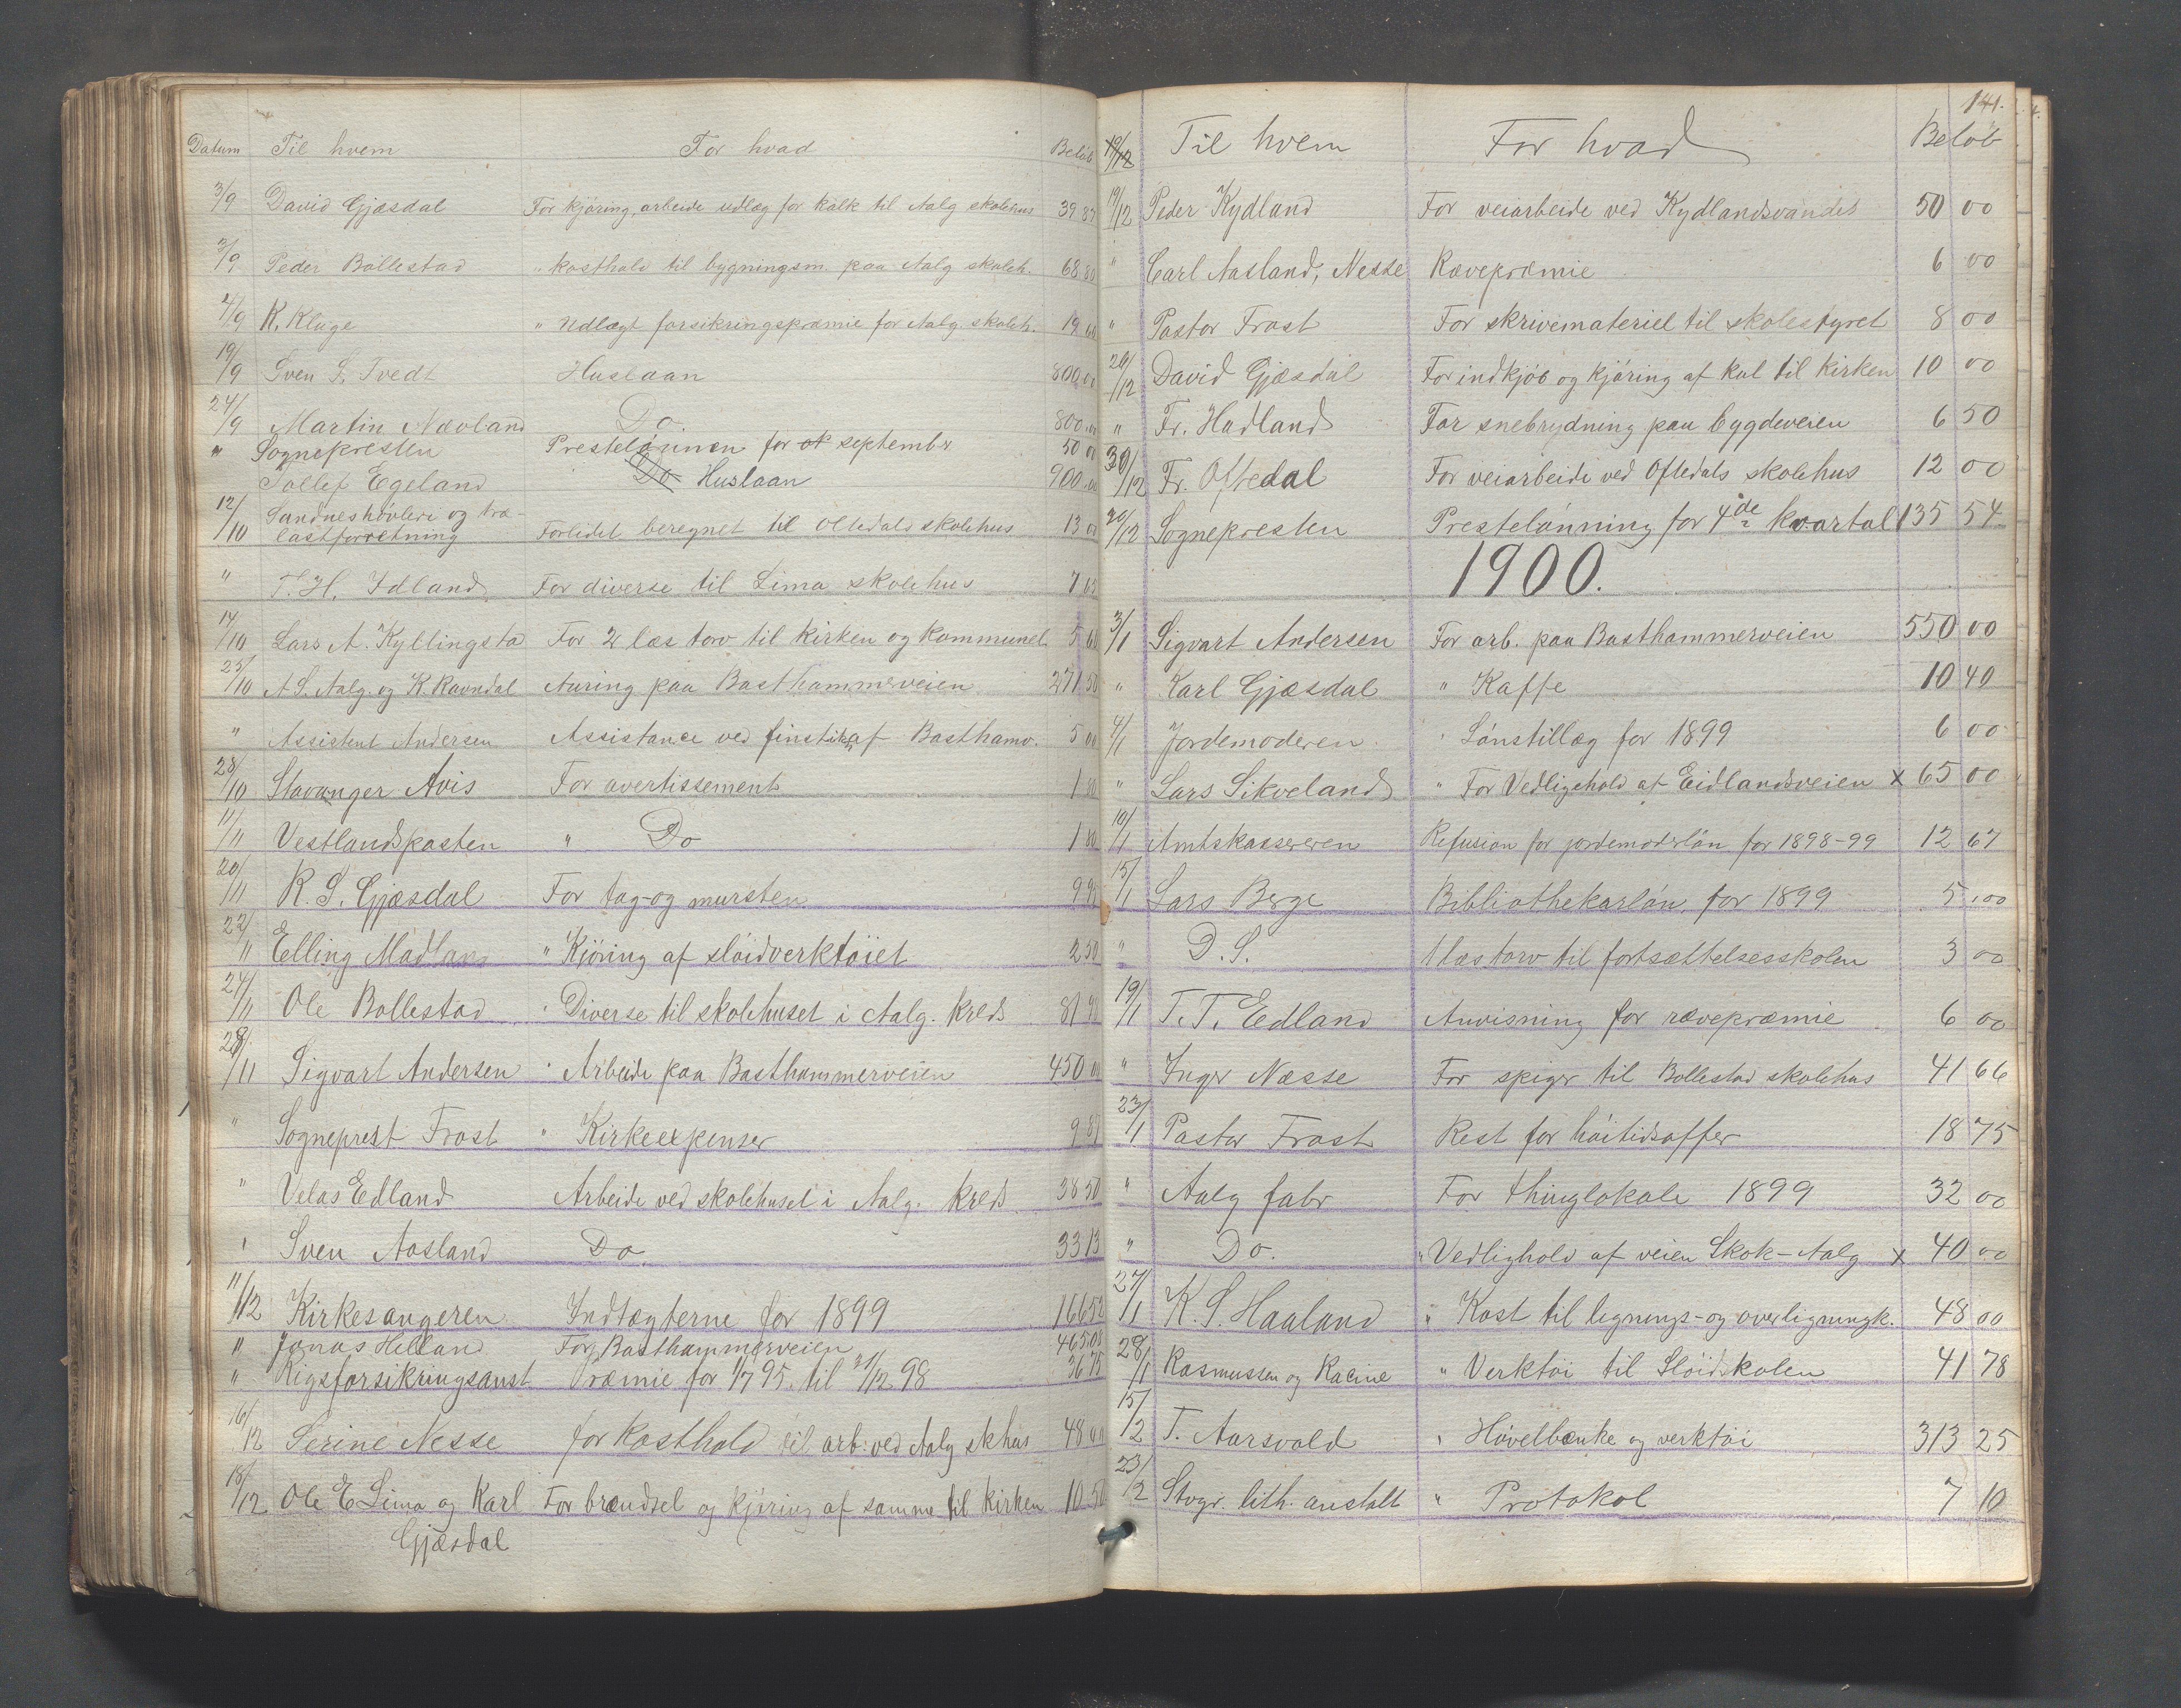 Datum Til hvem For hvad Beløb
3/9 David Gjæsdal For kjøring, arbeide udlæg for kalk til Aalg skolehus 39 87
3/9 Peder Bollestad " kosthold til bygningsm. paa Aalg skoleh. 68 80
4/9 K. Kluge " Udlagt forsikringspræmie for Aalg. skoleh. 19 60
19/9 Sven S. Tvedt Huslaan 800,00
24/9 Martin Nævland Do. 800,00
" Sognepresten Prestelønnen for september 50 00
Tollef Egeland Do Huslaan 900,00
12/10 Sandneshøvleri og træ-
lastforretning Forlidet beregnet til Oltedals skolehus 13 00
" T. H. Idland For diverse til Lima skolehus 7 65
14/10 Lars A. Kyllingstad For 2 læs torv til kirken og kommunel. 5 60
25/10 A S. Aalg. og K. Ravndal Auring paa Basthammerveien 271,50
" Assistent Andersen Assistance ved finstik. af Basthamv. 5 00
28/10 Stavanger Avis For avertissement 1 80
11/11 Vestlandsposten " Do 1 80
20/11 R. S. Gjæsdal For tag- og mursten 9 90
22/11 Elling Madland " Kjøring af sløidverktøiet 2 50
24/11 Ole Bollestad " Diverse til skolehuset i Aalg. kreds 81 90
28/11 Sigvart Andersen " Arbeide paa Basthammerveien 450 00
" Sogneprest Frost " Kirkeexpenser 9 89
" Velas Edland Arbeide ved skolehuset i Aalg. kreds 38 50
" Sven Aasland Do. 33 13
11/12 Kirkesangeren Indtægterne for 1899 166 52
" Jonas Helland For Basthammerveien 465,08
" Rigsforsikringsanst Præmie for 1/7 95. til 31/12 98 36 75
16/12 Serine Nesse for Kosthold til arb: ved Aalg skhus 48 00
18/12 Ole E Lima og Karl For brændsel og kjøring af samme til kirken 10 50
Gjæsdal
141.
19/12 Til hvem For hvad Beløb
19/12 Peder Kydland For veiarbeide ved Kydlandsvandet 50 00
" Carl Aasland, Nesse Rævepræmie 6 00
" Pastor Frost For skrivemateriel til skolestyret 8 00
20/12 David Gjæsdal For indkjøb og kjøring af kul til kirken 10 00
" Fr. Hadland For snebrydning paa bygdeveien 6 50
30/12 Fr. Oftedal For veiarbeide ved Oftedals skolehus 12 00
20/12 Sognepresten Prestelønning for 4de kvartal 135 54
1900.
3/1 Sigvart Andersen For arb. paa Basthammerveien 550 00
" Karl Gjæsdal " Kaffe 10 40
4/1 Jordemoderen " Lønstillæg for 1899 6 00
" Lars Sikveland " For Vedligehold af Eidlandsveien x 65 00
10/1 Amtskassereren Refusion for jordemoderløn for 1898-99 12 67
15/1 Lars Berge Bibliothekarløn. for 1899 5,00
" D. S. 1 læs torv til fortsættelsesskolen 3 00
19/1 T. T. Edland Anvisning for rævepræmie 6 00
" Inger Næsse For spiger til Bollestad skolehus 41 66
23/1 Pastor Frost Rest for høitidsoffer 18 75
" Aalg fabr For thinglokale 1899 32 00
" Do. " Vedlighold af veien Skok-Aalg x 40 00
27/1 K. S. Haaland " Kost til lignings- og overligningk. 48 00
28/1 Rasmussen og Racine " Verktøi til Sløidskolen 41 78
15/2 T. Aarsvold " Høvelbænke og verktøi 313 25
23/2 Stvgr. lith. anstalt " Protokol 7 10